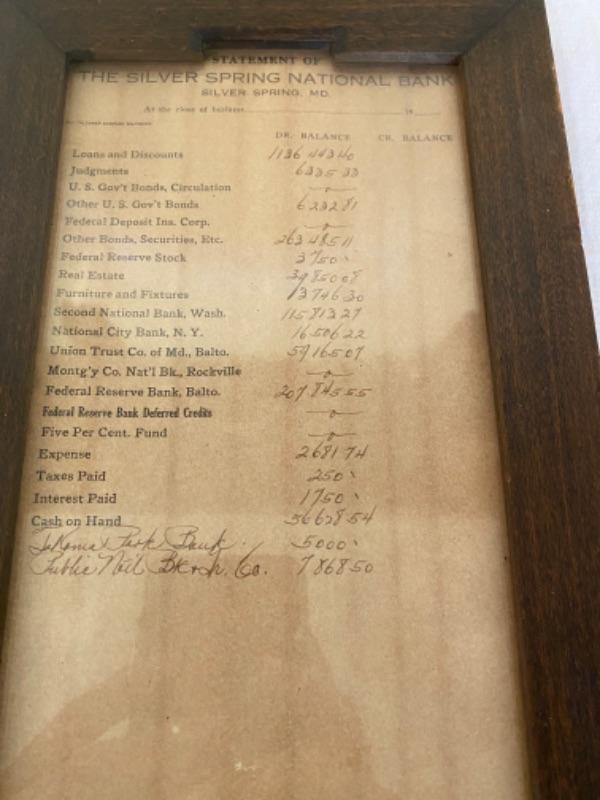 STATEMENT OF
THE SILVER SPRING NATIONAL BANK
SILVER SPRING, MD.
At the close of business 19
DR. BALANCE CR. BALANCE
Loans and Discounts 1136 443 40
Judgments 6335 33
U. S. Gov't Bonds, Circulation —o—
Other U. S. Gov't Bonds 6232 81
Federal Deposit Ins. Corp. —o—
Other Bonds, Securities, Etc. 263 485 11
Federal Reserve Stock 3750
Real Estate 39850 08
Furniture and Fixtures 13746 30
Second National Bank, Wash. 115813 27
National City Bank, N. Y. 16506 22
Union Trust Co. of Md., Balto. 59165 07
Montg'y Co. Nat'l Bk., Rockville —o—
Federal Reserve Bank, Balto. 207 845 55
Federal Reserve Bank Deferred Credits —o—
Five Per Cent. Fund —o—
Expense 2681 74
Taxes Paid 250
Interest Paid 1750
Cash on Hand 36628 54
Takoma Park Bank 5000
Public Natl Bk & Tr. Co. 7868 50